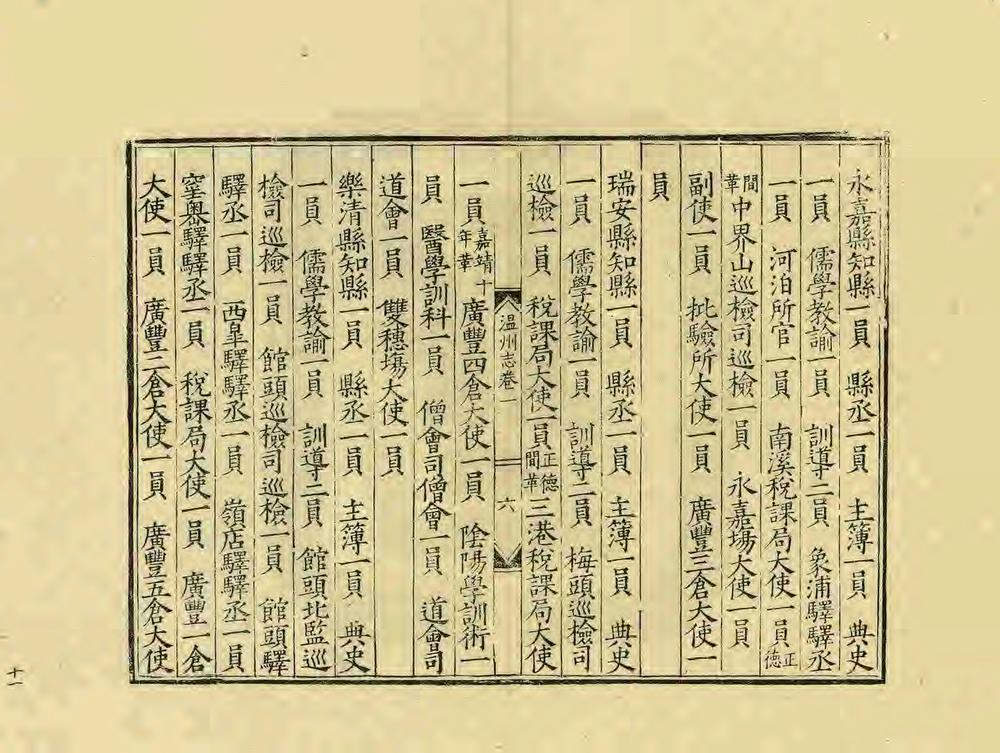 永嘉縣知縣一員　縣丞一員　主簿一員　典史
一員　儒學教諭一員　訓導二員　象浦驛驛丞
一員　河泊所官一員　南溪稅課局大使一員正德
間革中界山巡檢司巡檢一員　永嘉塲大使一員
副使一員　批驗所大使一員　廣豐三倉大使一
員
瑞安縣知縣一員　縣丞一員　主簿一員　典史
一員　儒學教諭一員　訓導二員　梅頭巡檢司
巡檢一員　稅課局大使一員正德間革三港稅課局大使
温州志卷一　六
一員嘉靖十年革廣豐四倉大使一員　陰陽學訓術一
員　醫學訓科一員　僧會司僧會一員　道會司
道會一員　雙穗塲大使一員
樂清縣知縣一員　縣丞一員　主簿一員　典史
一員　儒學教諭一員　訓導二員　館頭北監巡
檢司巡檢一員　館頭巡檢司巡檢一員　館頭驛
驛丞一員　西皐驛驛丞一員　嶺店驛驛丞一員
窑奥驛驛丞一員　稅課局大使一員　廣豐一倉
大使一員　廣豐二倉大使一員　廣豐五倉大使
十一